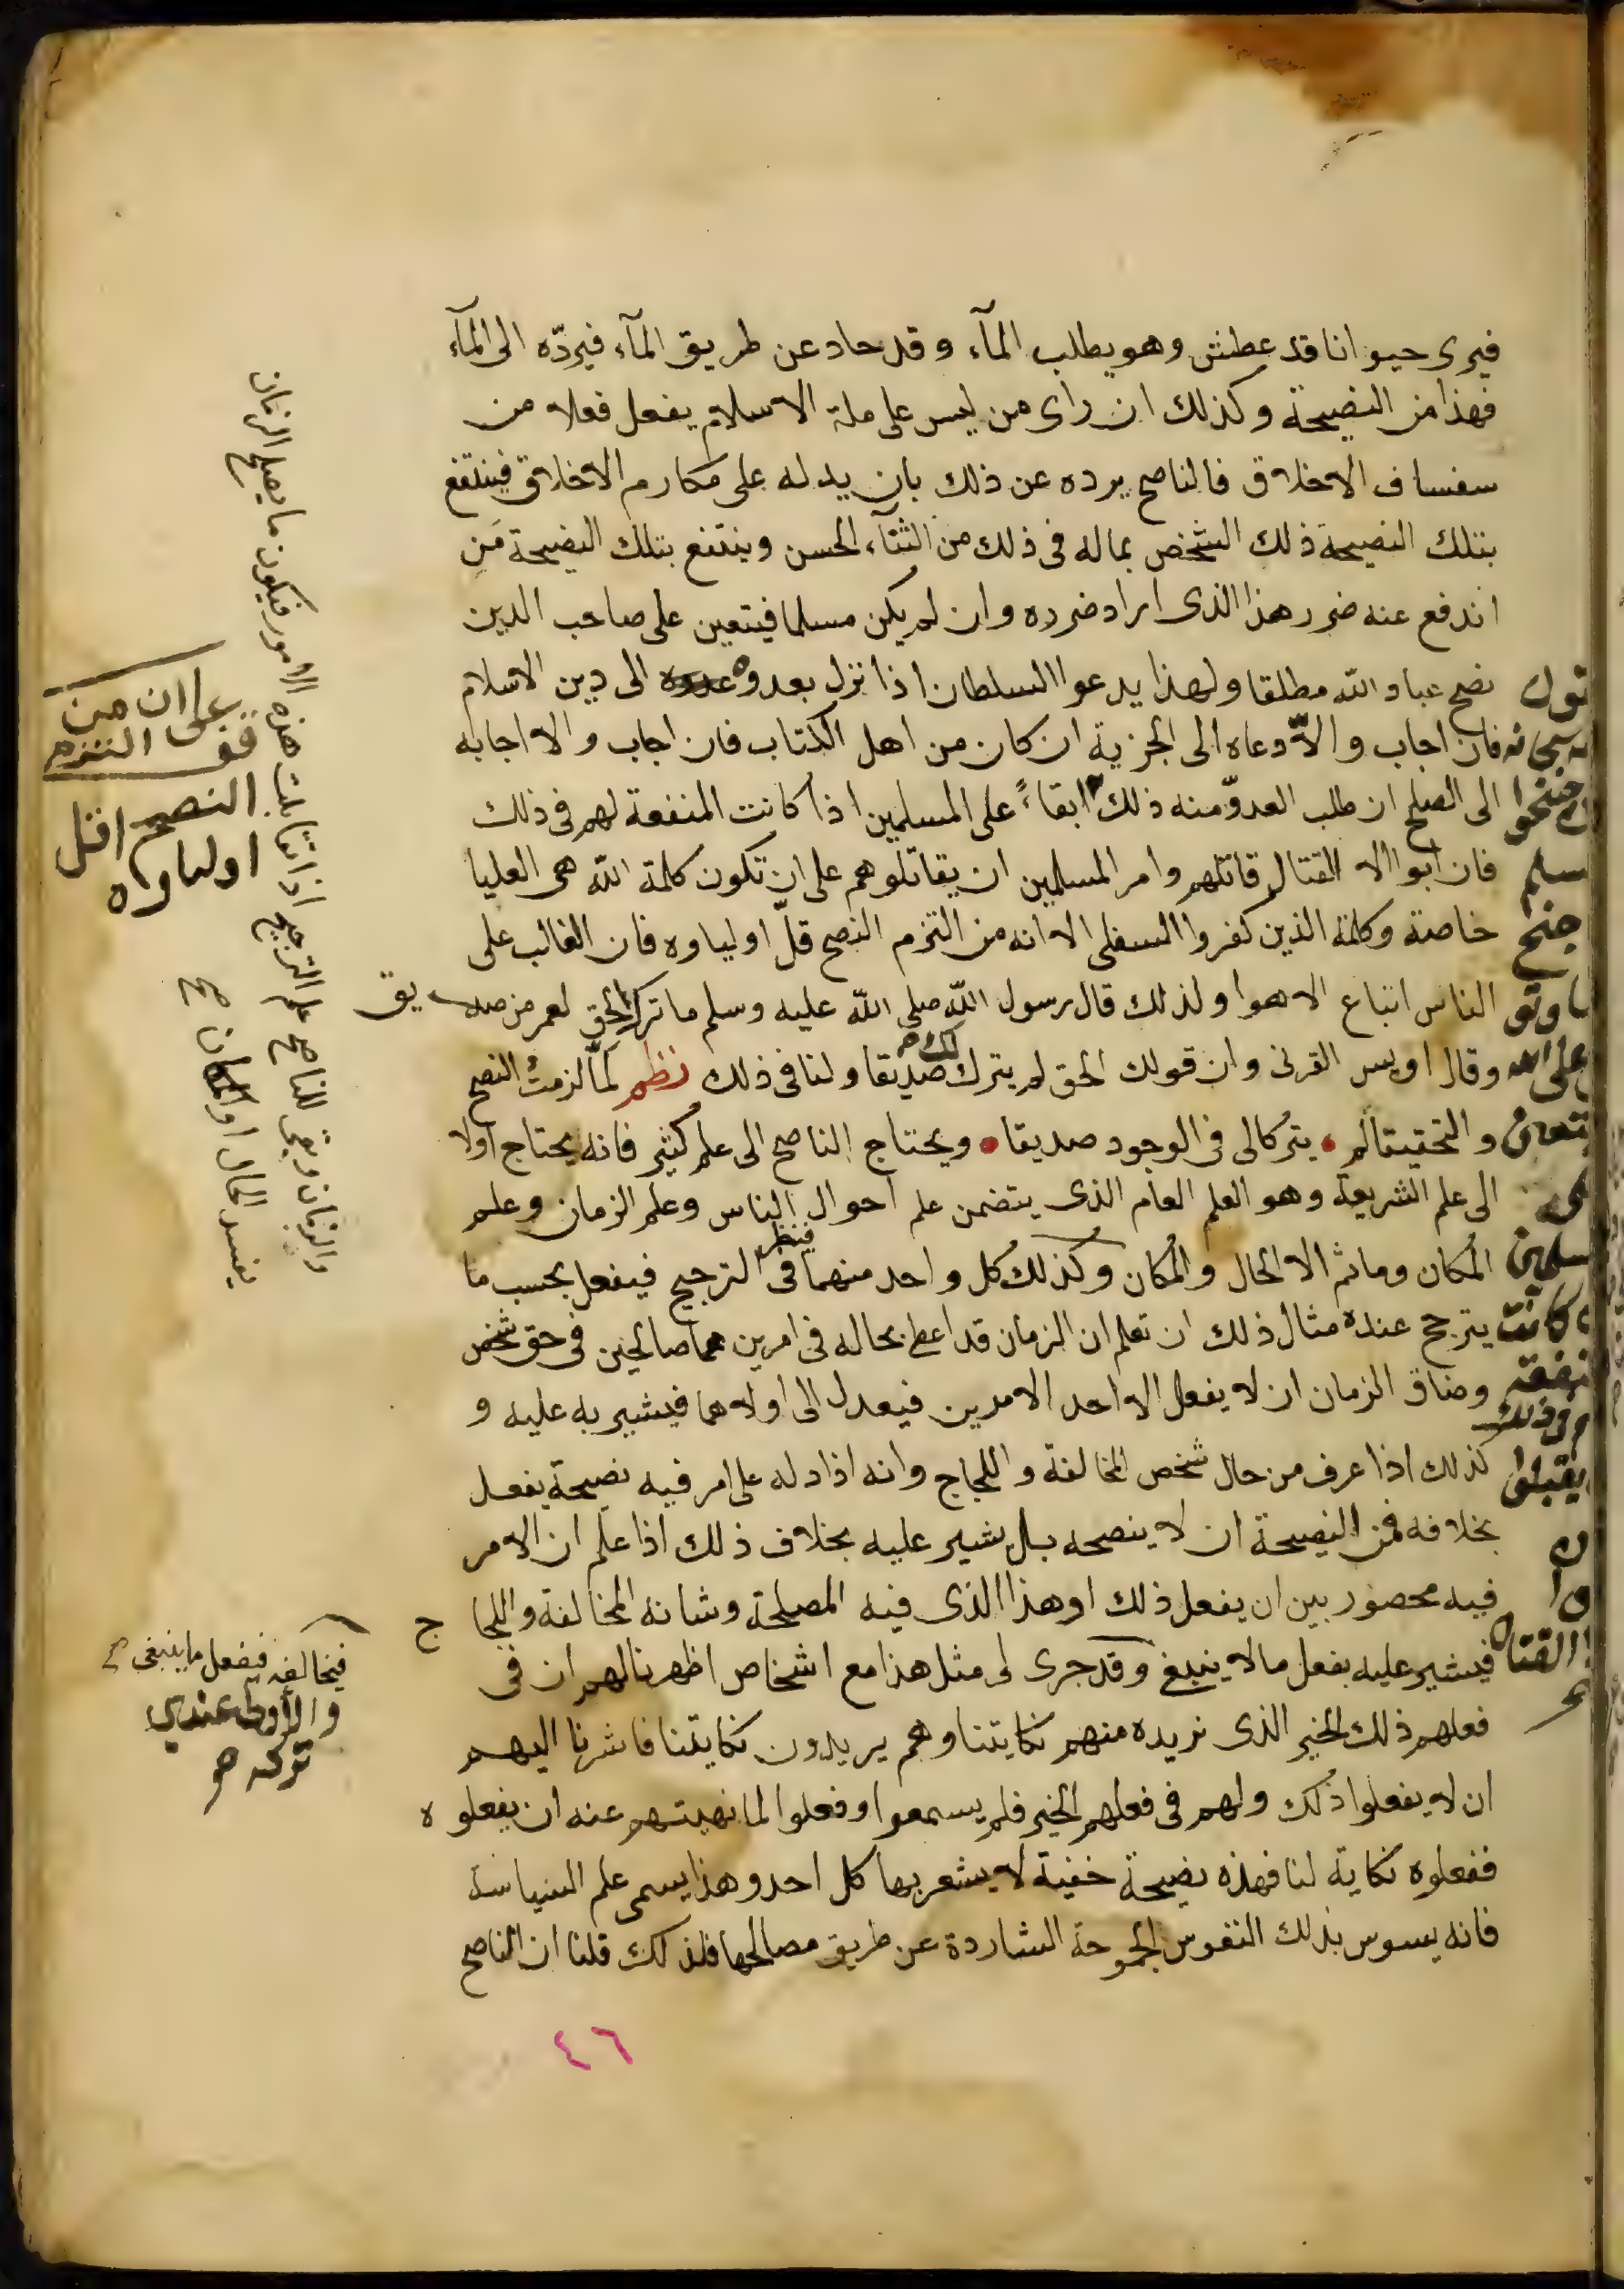 فيرى حيوانا قد عطش وهو يطلب المآء وقد حاد عن طريق المآء فيردّه الى المآء
فهذا من النصيحة وكذلك ان راى من ليس على ملة الاسلام يفعل فعلا من
سفساف الاخلاق فالناصح يرده عن ذلك بان يدله على مكارم الاخلاق فينتفع
بتلك النصيحة ذلك الشخص بماله فى ذلك من الثنآء الحسن وينتفع بتلك النصيحة مَن
اندفع عنه ضرر هذا الذى اراد ضرره وان لم يكن مسلما فيتعين على صاحب الدين
نصح عباد الله مطلقا ولهذا يدعوا السلطان اذا نزل بعدوه عدوه الى دين الاسلام
فان اجاب والاّ دعاه الى الجزية ان كان من اهل الكتاب فان اجاب والا اجابه
الى الصلح ان طلب العدوّ منه ذلك ابقاءً على المسلمين اذا كانت المنفعة لهم فى ذلك
فان ابوا الا القتال قاتلهم وامر المسلمين ان يقاتلوهم على ان تكون كلمة الله هى العليا
خاصة وكلمة الذين كفروا السفلى الا انه من التزم النصح قلّ اولياوه فان الغالب على
الناس اتباع الاهوا ولذلك قال رسول الله صلى الله عليه وسلم ما ترك الحق لعمر من صديق
وقال اويس القرنى وان قولك الحق لم يترك لك صديقا ولنا فى ذلك نظم لمّا لزمتُ النصح
والتحقيقا لم • يتركا لى فى الوجود صديقا • ويحتاج الناصح الى علم كثير فانه يحتاج اولا
الى علم الشريعة وهو العلم العام الذى يتضمن علم احوال الناس وعلم الزمان وعلم
المكان وما ثم الا الحال والمكان وكذلك كل واحد منهما فينظر فى الترجيح فيفعل بحسب ما
يترجح عنده مثال ذلك ان تعلم ان الزمان قد اعطى بحاله فى امرين هما صالحين فى حق شخص
وضاق الزمان ان لا يفعل الا احد الامرين فيعدل الى اولاهما فيشير به عليه و
كذلك اذا عرف من حال شخص المخالفة واللجاج وانه اذا دله على امر فيه نصيحة يفعل
بخلافه فمن النصيحة ان لا ينصحه بل يشير عليه بخلاف ذلك اذا علم ان الامر
فيه محصور بين ان يفعل ذلك او هذا الذى فيه المصلحة وشانه المخالفة واللجا ج
فيشير عليه بفعل ما لا ينبغى وقد جرى لى مثل هذا مع اشخاص اظهرنا لهم ان فى
فعلهم ذلك الخير الذى نريده منهم نكايتنا وهم يريدون نكايتنا فاشرنا اليهم
ان لا يفعلوا ذلك ولهم فى فعلهم الخير فلم يسمعوا وفعلوا لما نهيتهم عنه ان يفعلو ه
ففعلوه نكاية لنا فهذه نصيحة خفية لا يشعر بها كل احد وهذا يسمى علم السياسة
فانه يسوس بذلك النفوس الجموحة الشاردة عن طريق مصالحها فلذلك قلنا ان الناصح
جنحوا
سلم
جنح
على الله
كانت
القتال
على ان من
النصح اقل
اولياوه
والزمان وبقى للناصح علم الترجيح اذا تقابلت هذه الامور فيكون ما يصلح الزمان
يفسد الحال او المكان صح
فيخالفه فيفعل ما ينبغى
والأولى عندي
تركه
٤٦